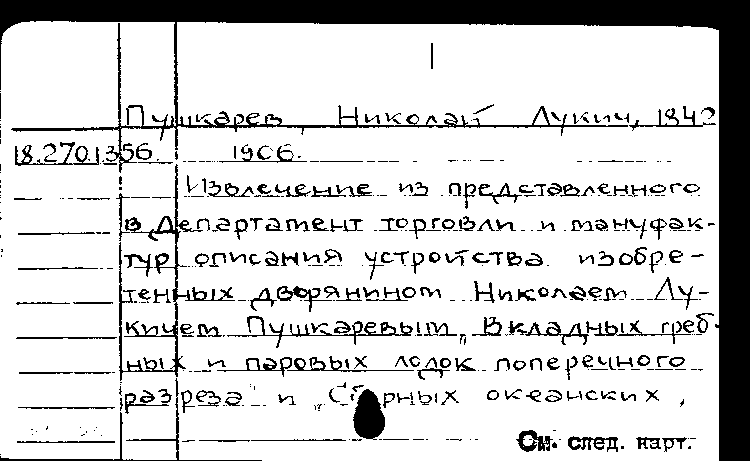 Пушкарев, Николай Лукич, 1842
18.270.1356. 1906.
Извлечение из представленного
в Департамент торговли и мануфак-
тур описания устройства изобре-
тенных дворянином Николаем Лу-
кичем Пушкаревым „Вкладных греб-
ных и паровых лодок поперечного
разреза" и „Сборных океанских,
См. след. карт.